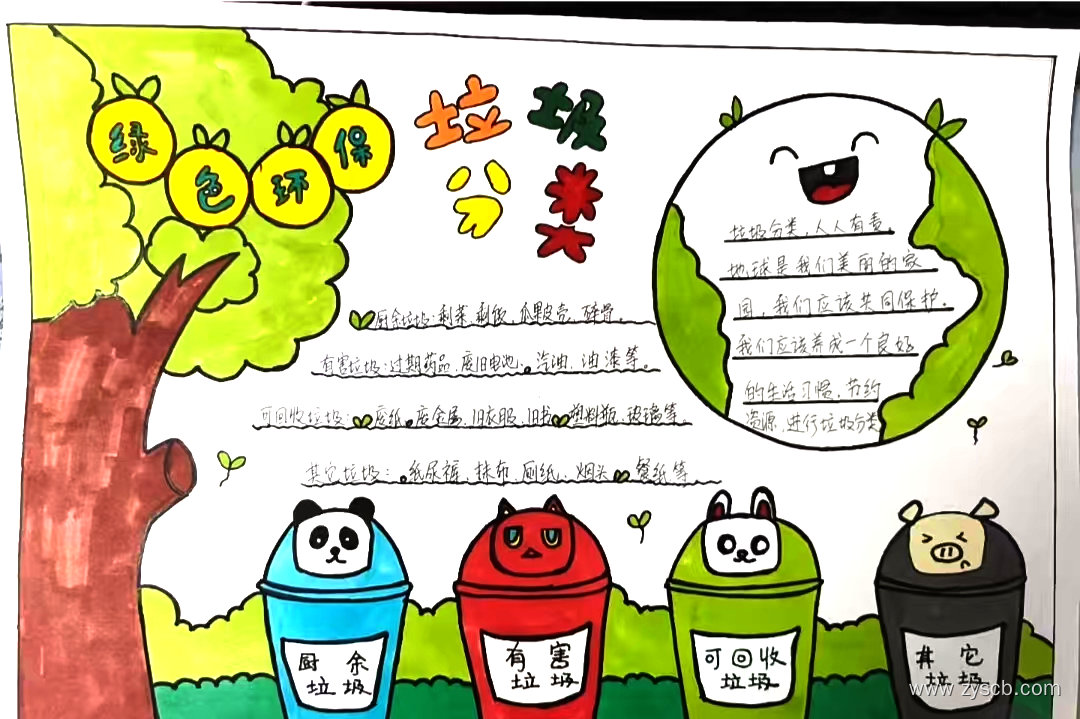 绿色环保
垃圾
分类
垃圾分类,人人有责,
地球是我们美丽的家
园,我们应该共同保护。
我们应该养成一个良好
的生活习惯,节约
资源,进行垃圾分类
厨余垃圾:剩菜、剩饭、瓜果皮壳、碎骨。
有害垃圾:过期药品、废旧电池、汽油、油漆等。
可回收垃圾:废纸、废金属、旧衣服、旧书、塑料瓶、玻璃等。
其它垃圾:纸尿裤、抹布、厕纸、烟头、餐纸等
厨余
垃圾
有害
垃圾
可回收
垃圾
其它
垃圾
www.zyscb.com